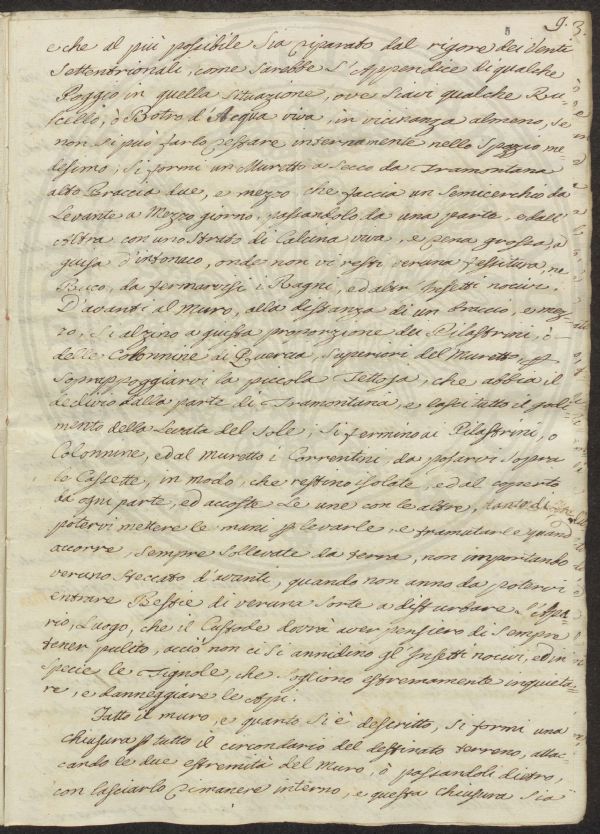 9. 3.
5
e che al più possibile sia riparato dal rigore dei Venti
Settentrionali, come sarebbe l'Appendice di qualche
Poggio in quella situazione, ove siavi qualche Ru-
scello, o Botro d'Acqua viva, in vicinanza almeno, se
non si può farlo restare internamente nello spazio me-
desimo, si formi un Muretto a secco da Tramontana
alto Braccia due, e mezzo che faccia un semicerchio da
Levante a Mezzo giorno, passandolo da una parte, e dall'
Altra con uno strato di Calcina viva, e rena grossa, a
guisa d'intonaco, onde non vi resti veruna fessitura, ne
Buco, da fermarvisi i Ragni, ed altri Insetti nocivi.
D'avanti al Muro, alla distanza di un braccio, e mez-
zo, si alzino a questa proporzione dei Pilastrini, o
delle Colonnine di Quercia, superiori del Muretto, p
soprappoggiarvi la piccola Tettoja, che abbia il
declivio dalla parte di Tramontana, e lasci tutto il godi-
mento della Levata del Sole, si fermino ai Pilastrini, o
Colonnine, ed al muretto i Correntini, da posarvi sopra
le Cassette, in modo, che restino isolate, ed al coperto
da ogni parte, ed accoste le une con le altre, tanto di
potervi mettere le mani p levarle, e tramutarle quand
accorre, sempre sollevate da terra, non importando
veruno steccato d'avanti, quando non anno da potervi
entrare Bestie di veruna sorte a disturbare l'Apia-
rio, Luogo, che il Custode dovrà aver pensiero di sempre
tener pulito, acciò non ci si annidino gl'Insetti nocivi, ed in
specie le Tignole, che sogliono estremamente inquieta-
re, e danneggiare le Api.
Fatto il muro, e quanto si è descritto, si formi una
chiusura p tutto il circondario del destinato terreno, attac-
cando le due estremità del Muro, o passandoli dietro,
con lasciarlo rimanere interno, e questa chiusura sia